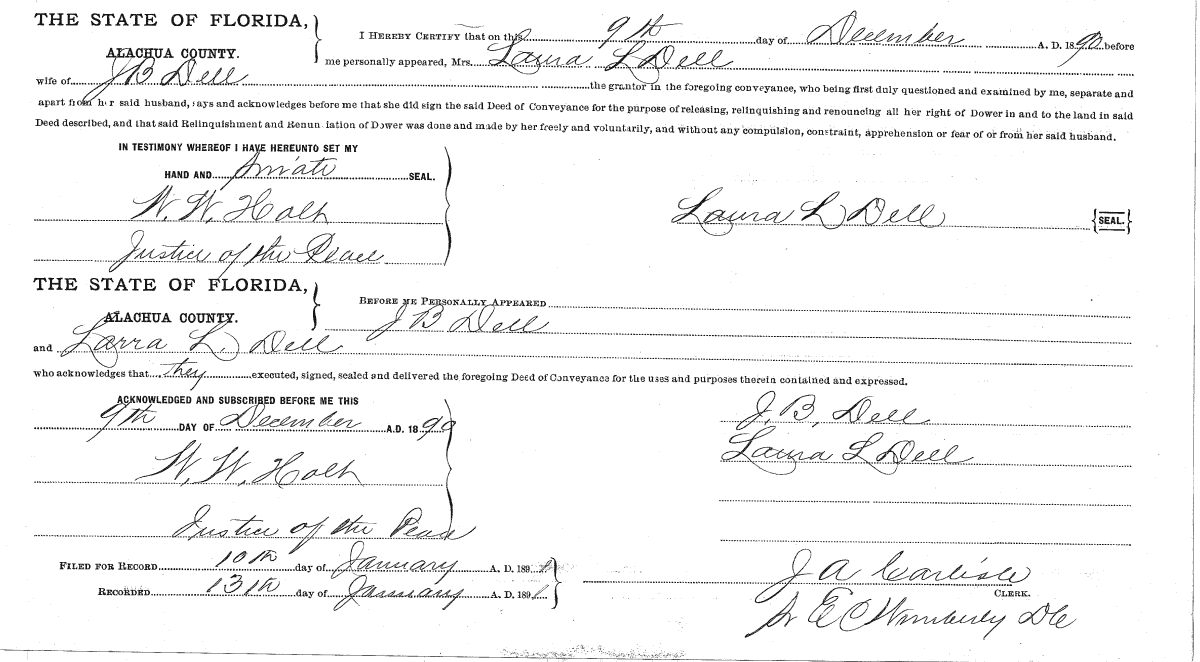 THE STATE OF FLORIDA,
ALACHUA COUNTY.
I HEREBY CERTIFY that on this 9th day of December A. D. 1890 before
me personally appeared, Mrs. Laura L Dell
wife of J B Dell the grantor in the foregoing conveyance, who being first duly questioned and examined by me, separate and
apart from her said husband, says and acknowledges before me that she did sign the said Deed of Conveyance for the purpose of releasing, relinquishing and renouncing all her right of Dower in and to the land in said
Deed described, and that said Relinquishment and Renunciation of Dower was done and made by her freely and voluntarily, and without any compulsion, constraint, apprehension or fear of or from her said husband.
IN TESTIMONY WHEREOF I HAVE HEREUNTO SET MY
HAND AND Private SEAL.
W. W. Holt
Laura L Dell {SEAL.}
Justice of the Peace
THE STATE OF FLORIDA,
ALACHUA COUNTY.
BEFORE ME PERSONALLY APPEARED
J B Dell
and Larra L. Dell
who acknowledges that they executed, signed, sealed and delivered the foregoing Deed of Conveyance for the uses and purposes therein contained and expressed.
ACKNOWLEDGED AND SUBSCRIBED BEFORE ME THIS
9th DAY OF December A.D. 1890
J. B, Dell
W. W. Holt
Laura L Dell
Justice of the Peace
FILED FOR RECORD 10th day of January A. D. 1891
RECORDED 13th day of January A. D. 1891
J A Carlisle
CLERK.
E C Wimberly DC